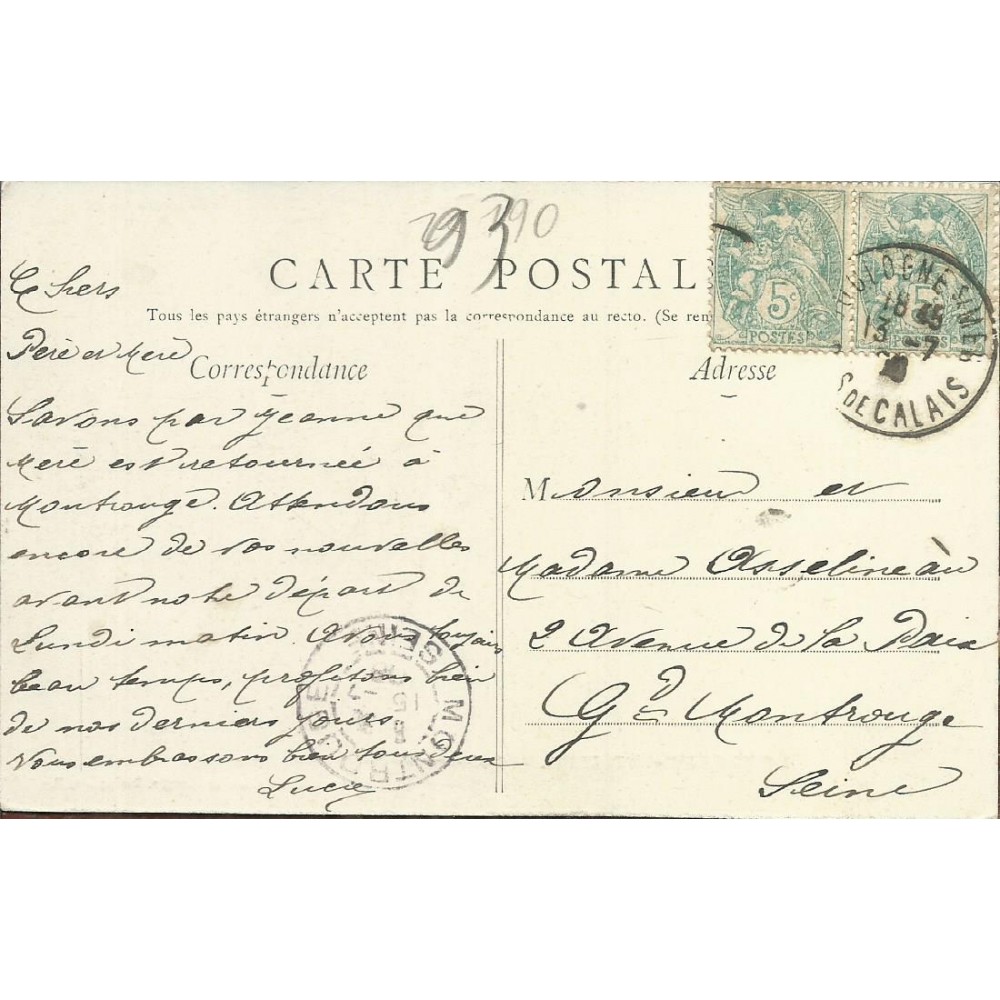 93
CARTE POSTAL
Tous les pays étrangers n'acceptent pas la correspondance au recto. (Se ren
5c
POSTES
5c
POSTES
BOULOGNE S/MER
18 45
13 -7
S DE CALAIS
Correspondance
Chers
Père et Mère
Savons par Jeanne que
Mère est retournée à
Montrouge. Attendons
encore de vos nouvelles
avant notre départ de
Lundi matin. Avons toujours
beau temps, profitons bien
de nos derniers jours
Vous embrassons bien tous deux
Lucie
MONTROUGE
SEINE
15
Adresse
Monsieur et
Madame Asselineau
2 Avenue de la Paix
Gd Montrouge
Seine